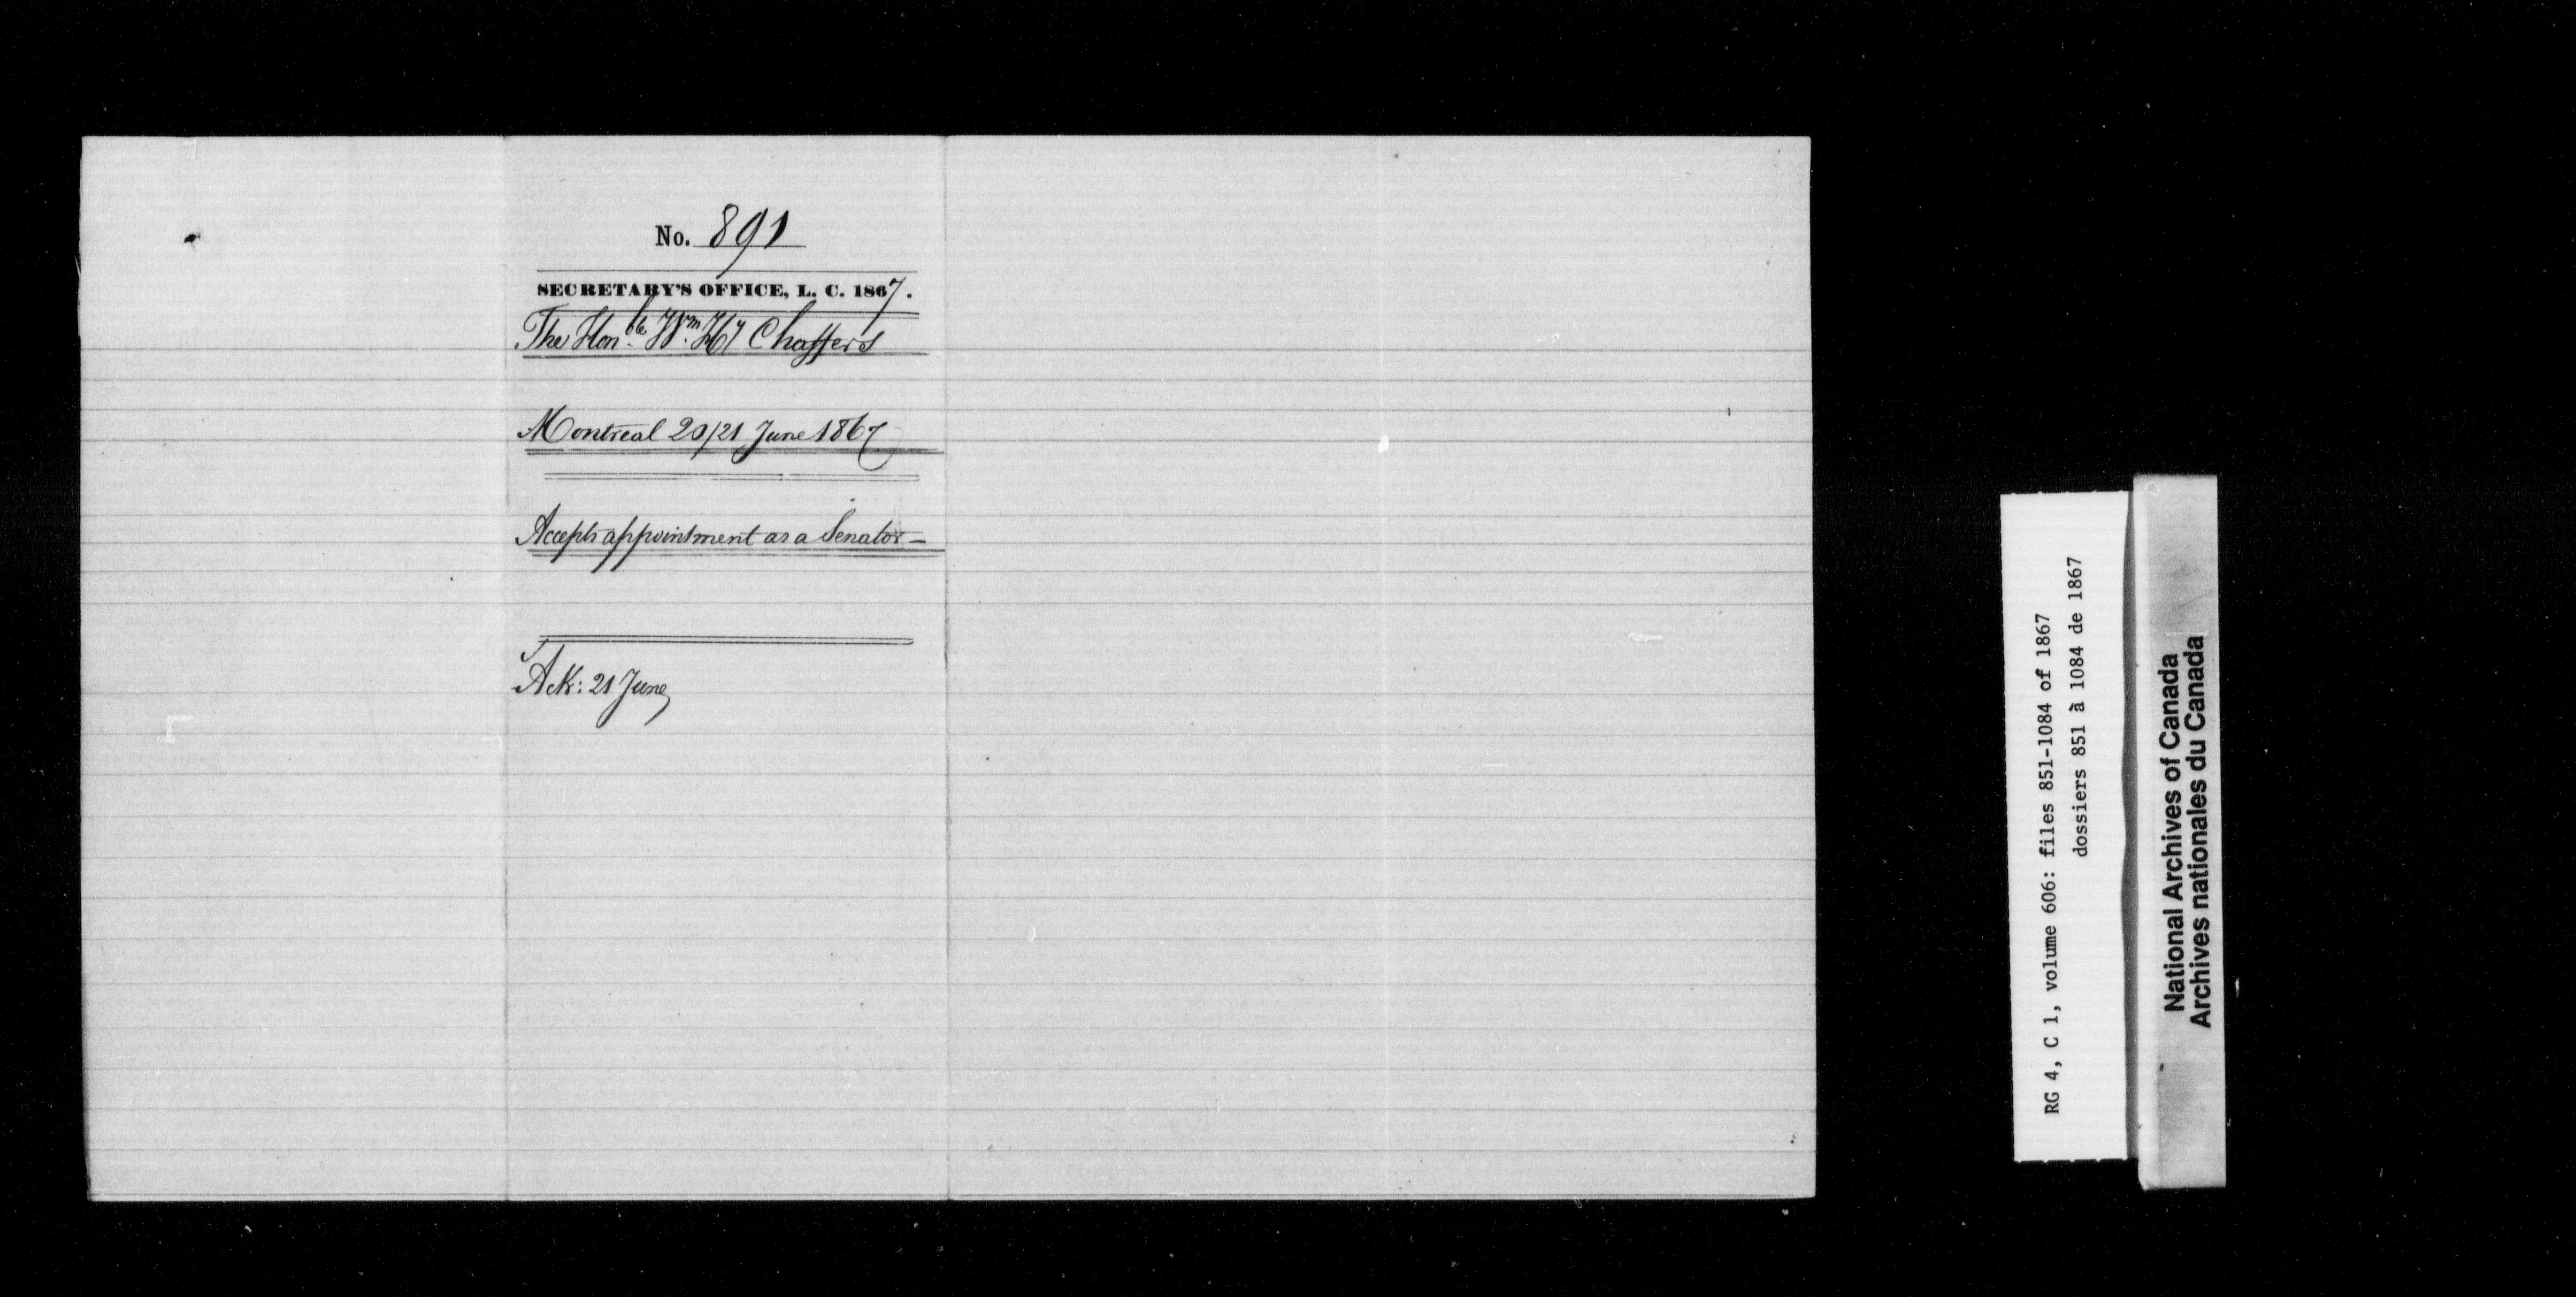 No. 891
SECRETARY'S OFFICE, L. C. 1867.
The Honble Wm. Hy Chaffers
Montreal 20/21 June 1867
Accepts appointment as a Senator -
Ack: 21 June
RG 4, C 1, volume 606: files 851-1084 of 1867
dossiers 851 à 1084 de 1867
National Archives of Canada
Archives nationales du Canada